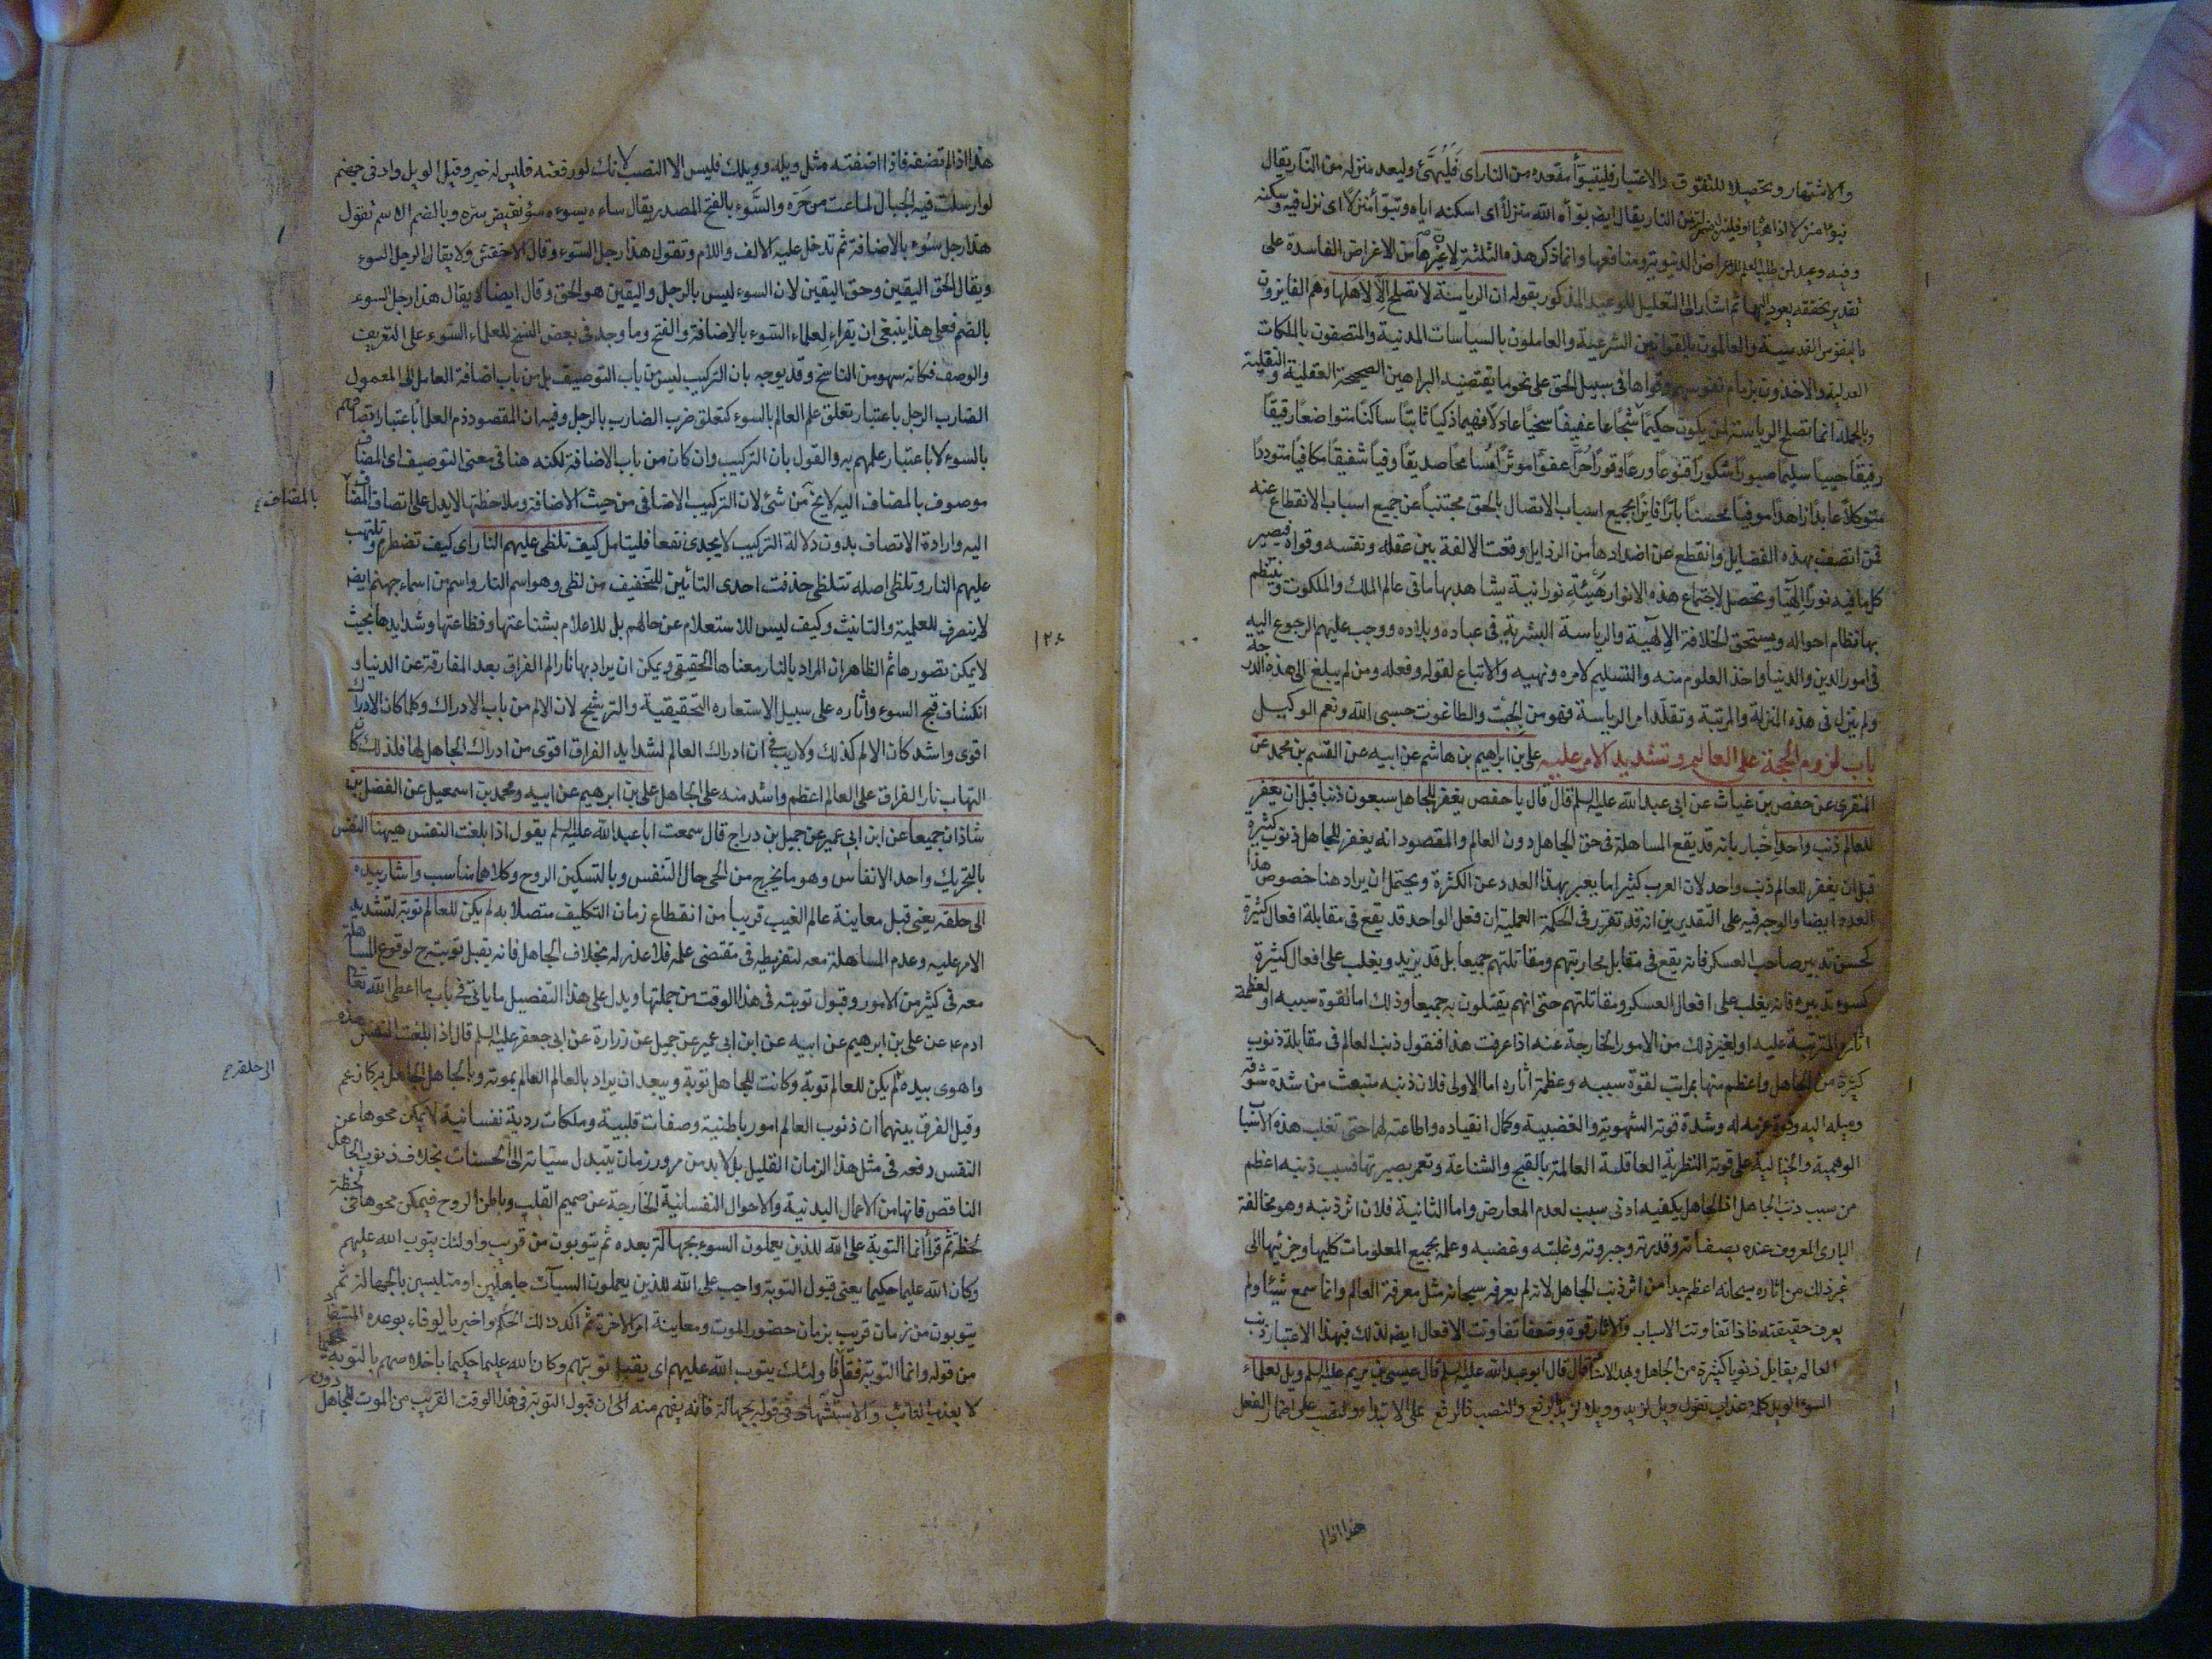 والاشتهار وتحصيلا للتفوق والاعتبار فليتبوأ مقعده من النار اى فَلْيُهَيّئ وليعد منزله من النار يقال
تبوء منزلا اذا هيّأ او فلينزل من النار يقال ايض بوأه الله منزلاً اى اسكنه اياه وتبوّأ منزلاً اى نزل فيه وسكنه
وفيه وعيد لمن طلب العلم للاعراض الدنيوية ومنافعها وانما ذكر هذه الثلثة لا غيرها من الاغراض الفاسدة على
تقدير تحققه يعود اليها ثم اشار الى التعليل للوعيد المذكور بقوله ان الرياسة لا تصلح الّا لاهلها وهم الفايزون
بالنفوس القدسية والعالمون بالقوانين الشرعية والعاملون بالسياسات المدنية والمتصفون بالملكات
العدلية والاخذون بزمام نفوسهم وقواها فى سبيل الحق على نحو ما يقتضيه البراهين الصحيحة العقلية والنقلية
وبالجملة انما تصلح الرياسة لمن يكون حكيمًا شجاعا عفيفًا سخيًا عادلاً فهيما ذكيًا ثابتًا ساكنًا متواضعًا رقيقًا
رفيقًا حييا سليمًا صبورًا شكورًا قنوعًا ورعًا وقورًا حُرًّا عفوًّا موثرًا مسامحًا صديقًا وفيًا شفيقًا مكافيًا متوددًا
متوكلاً عابدًا زاهدًا موفيًا محسنًا بارًّا فايزًا بجميع اسباب الاتصال بالحق مجتنبًا عن جميع اسباب الانقطاع عنه
فمن اتصف بهذه الفضايل وانقطع عن اضدادها من الرذايل وقعت الالفة بين عقله ونفسه وقواه فيصير
كل ما فيه نورًا إلٰهيًّا ويحصل لاجتماع هذه الانوار هَيْئَة نورانية يشاهد بها ما فى عالم الملك والملكوت وينتظم
بها نظام احواله ويستحق الخلافة الالٰهية والرياسة البشرية فى عباده وبلاده ووجب عليهم الرجوع اليه
فى امور الدين والدنيا واخذ العلوم منه والتسليم لامره ونهيه والاتباع لقوله وفعله ومن لم يبلغ الى هذه الدرجة
ولم ينزل فى هذه المنزلة والمرتبة وتقلّد امر الرياسة فهو من الجبت والطاغوت حسبى الله ونعم الوكيل
باب لزوم الحجة على العالم وتشديد الامر عليه على بن ابراهيم بن هاشم عن ابيه عن القسم بن محمد عن
المنقرى عن حفص بن غياث عن ابى عبد الله عليه السلم قال قال يا حفص يغفر للجاهل سبعون ذنبا قبل ان يغفر
للعالم ذنب واحد اخبار بانه قد يقع المساهلة فى حق الجاهل دون العالم والمقصود انه يغفر للجاهل ذنوب كثيرة
قبل ان يغفر للعالم ذنب واحد لان العرب كثيرا ما يعبر بهذا العدد عن الكثرة ويحتمل ان يراد هنا خصوص هذا
العدد ايضا والوجه فيه على التقديرين انه قد تقرر فى الحكمة العملية ان فعل الواحد قد يقع فى مقابلة افعال كثيرة
كحسن تدبير صاحب العسكر فانه يقع فى مقابل محاربتهم ومقاتلتهم جميعا بل قد يزيد ويغلب على افعال كثيرة
كسوء تدبيره فانه يغلب على افعال العسكر ومقاتلتهم حتى انهم يقتلون به جميعا وذلك اما لقوة سببه او لعظمة
اثاره المترتبة عليه او لغير ذلك من الامور الخارجة عنه اذا عرفت هذا فنقول ذنب العالم فى مقابلة ذنوب
كثيرة من الجاهل واعظم منها بمراتب لقوة سببه وعظمة اثاره اما الاولى فلان ذنبه منبعث من شدة شوقه
وميله اليه وقوة عزمه له وشدة قوته الشهوية والغضبية وكمال انقياده واطاعته لها حتى تغلب هذه الاسباب
الوهمية والخيالية على قوته النظرية العاقلية العالمة بالقبح والشناعة وتعمى بصيرتها فسبب ذنبه اعظم
من سبب ذنب الجاهل اذ الجاهل يكفيه ادنى سبب لعدم المعارض واما الثانية فلان اثر ذنبه وهو مخالفة
البارى المعروف عنده بصفاته وقدرته وجبروته وغلبته وغضبه وعلمه بجميع المعلومات كليها وجزئيها الى
غير ذلك من اثاره سبحانه اعظم جدا من اثر ذنب الجاهل لانه لم يعرفه سبحانه مثل معرفة العالم وانما سمع شيئا ولم
يعرف حقيقته فاذا تفاوتت الاسباب والاثار قوة وضعفا تفاوتت الافعال ايض لذلك فبهذا الاعتبار ذنب
العالم يقابل ذنوبا كثيرة من الجاهل وبهذا الاسناد قال قال ابو عبد الله عليه السلم قال عيسى بن مريم عليه السلم ويل لعلماء
السوء الويل كلمة عذاب تقول ويل لزيد وويلا لزيد بالرفع والنصب فالرفع على الابتداء والنصب على اضمار الفعل
هذا اذا لم
هذا اذا لم تضفه فاذا اضفته مثل ويله وويلك فليس الا النصب لانك لو رفعته فليس له خبر وقيل الويل واد فى جهنم
لو ارسلت فيه الجبال لماعت من حَرّه والسَّوء بالفتح المصدر يقال ساءه يسوءه سوءً نقيض سرّه وبالضم الاسم تقول
هذا رجل سَوْءٍ بالاضافة ثم تدخل عليه الالف واللام وتقول هذا رجل السوء وقال الاخفش ولا يقال الرجل السوء
ويقال الحق اليقين وحق اليقين لان السوء ليس بالرجل واليقين هو الحق وقال ايضا لا يقال هذا رجل السوء
بالضم فعلى هذا ينبغى ان يقراء لعلماء السوء بالاضافة والفتح وما وجد فى بعض النسخ للعلماء السوء على التعريف
والوصف فكانه سهو من الناسخ وقد يوجه بان التركيب ليس من باب التوصيف بل من باب اضافة العامل الى المعمول
الضارب الرجل باعتبار تعلق علم العالم بالسوء كتعلق ضرب الضارب بالرجل وفيه ان المقصود ذم العلماء باعتبار اتصافهم
بالسوء لا باعتبار علمهم به والقول بان التركيب وان كان من باب الاضافة لكنه هنا فى معنى التوصيف اى المضاف
موصوف بالمضاف اليه لا يخ من شئ لان التركيب الاضافى من حيث الاضافة وملاحظتها لا يدل على اتصاف المضاف
بالمضاف
اليه وارادة الاتصاف بدون دلالة التركيب لا يجدى نفعا فليتامل كيف تلظى عليهم النار اى كيف تضطرم وتلتهب
عليهم النار وتلظى اصله تتلظى حذفت احدى التائين للتخفيف من لظى وهو اسم النار واسم من اسماء جهنم ايض
لا ينصرف للعلمية والتانيث وكيف ليس للاستعلام عن حالهم بل للاعلام بشناعتها وفظاعتها وشدايدها بحيث
١٢٤
لا يمكن تصورها ثم الظاهر ان المراد بالنار معناها الحقيقى ويمكن ان يراد بها نار الم الفراق بعد المفارقة عن الدنيا و
انكشاف قبح السوء واثاره على سبيل الاستعاره التحقيقية والترشيح لان الالم من باب الادراك وكلما كان الادراك
اقوى واشد كان الالم كذلك ولا ريب فى ان ادراك العالم لشدايد الفراق اقوى من ادراك الجاهل لها فلذلك كان
التهاب نار الفراق على العالم اعظم واشد منه على الجاهل على بن ابرهيم عن ابيه ومحمد بن اسمعيل عن الفضل بن
شاذان جميعا عن ابن ابى عمير عن جميل بن دراج قال سمعت ابا عبد الله عليه السلم يقول اذا بلغت النفس هيهنا النفس
بالتحريك واحد الانفاس وهو ما يخرج من الحى حال التنفس وبالتسكين الروح وكلاهما مناسب واشار بيده
الى حلقه يعنى قبل معاينة عالم الغيب قريبا من انقطاع زمان التكليف متصلا به لم يكن للعالم توبة لتشديد
الامر عليه وعدم المساهلة معه لتفريطه فى مقتضى علمه فلا عذر له بخلاف الجاهل فانه يقبل توبته ح لوقوع المساهلة
معه فى كثير من الامور وقبول توبته فى هذا الوقت من جملتها ويدل على هذا التفصيل ما ياتى فى باب ما اعطى الله تعالى
ادم ع عن على بن ابرهيم عن ابيه عن ابن ابى عمير عن جميل عن زرارة عن ابى جعفر عليه السلم قال اذا بلغت النفس هذه
الى حلقه
واهوى بيده لم يكن للعالم توبة وكانت للجاهل توبة ويبعد ان يراد بالعالم العالم بموته وبالجاهل الجاهل به كما زعم
وقيل الفرق بينهما ان ذنوب العالم امور باطنية وصفات قلبية وملكات ردية نفسانية لا يمكن محوها عن
النفس دفعة فى مثل هذا الزمان القليل بل لا بد من مرور زمان يتبدل سيّاته الى الحسنات بخلاف ذنوب الجاهل
الناقص فانها من الاعمال البدنية والاحوال النفسانية الخارجة عن صميم القلب وباطن الروح فيمكن محوها فى لحظة
ثم قرأ انما التوبة على الله للذين يعملون السوء بجهالة بعده ثم يتوبون من قريب واولئك يتوب الله عليهم
وكان الله عليما حكيما يعنى قبول التوبة واجب على الله للذين يعملون السيات جاهلين او متلبسين بالجهالة ثم
يتوبون من زمان قريب بزمان حضور الموت ومعاينة امر الاخرة ثم اكد ذلك الحكم واخبر بالوفاء بوعده المستفاد
من قوله وانما التوبة فقال فاولئك يتوب الله عليهم اى يقبل توبتهم وكان الله عليما حكيما باخلاصهم بالتوبة حكيما
لا يعذب التائب والاستشهاد فى قوله بجهالة فانه يفهم منه الى ان قبول التوبة فى هذا الوقت القريب من الموت للجاهل دون